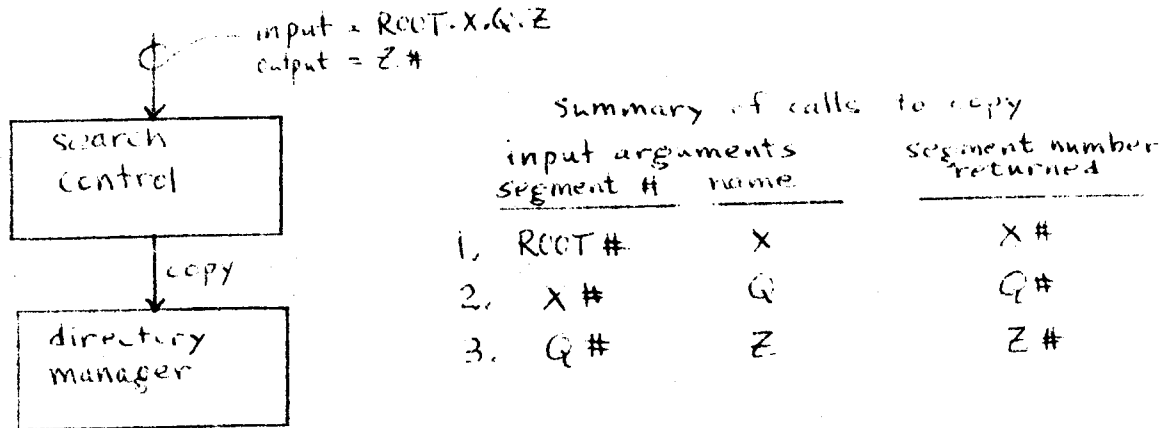 input = ROOT.X.Q.Z
output = Z#
search
control
copy
directory
manager
Summary of calls to copy
input arguments
segment # name
segment number
returned
1. ROOT # X X #
2. X # Q Q #
3. Q # Z Z #